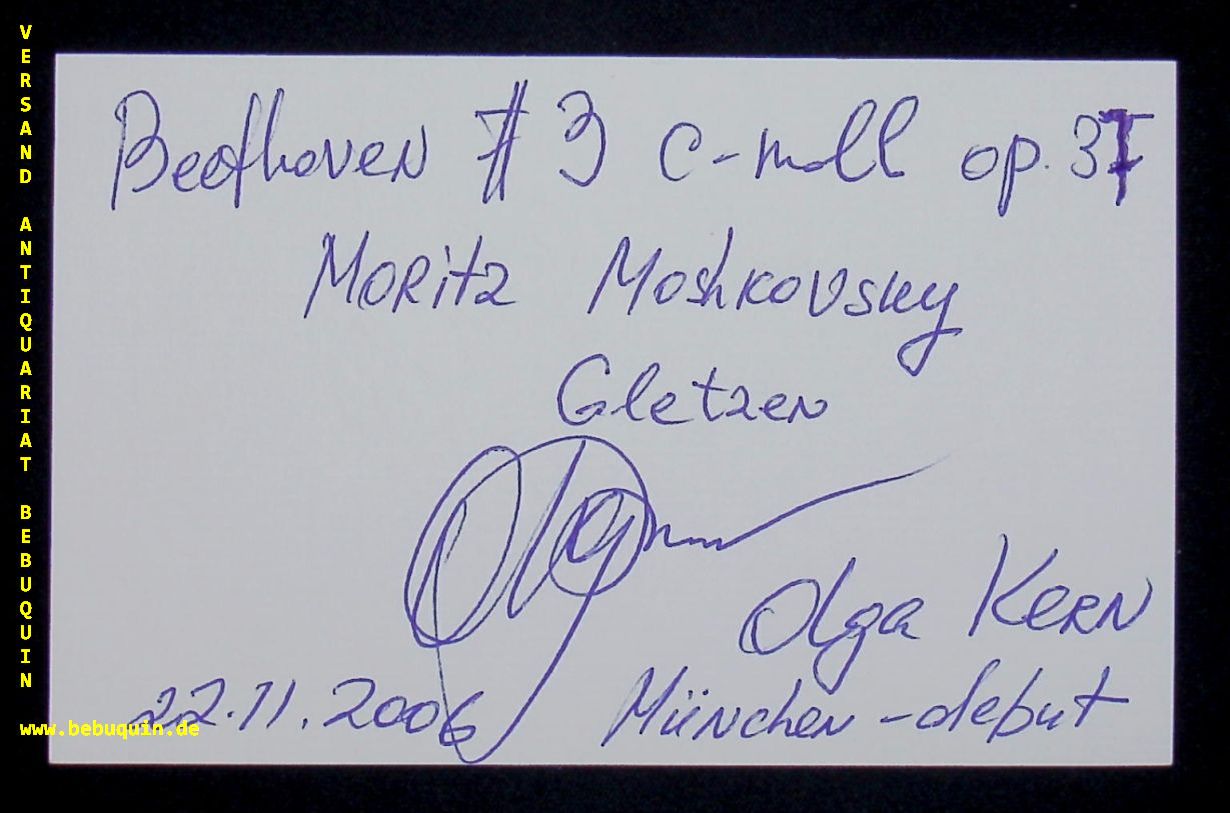 VERSAND ANTIQUARIAT BEBUQUIN
Beethoven # 3 c-moll op. 37
Moritz Moshkovsky
Gletzen
Olga
Olga Kern
22.11.2006 München - debut
www.bebuquin.de